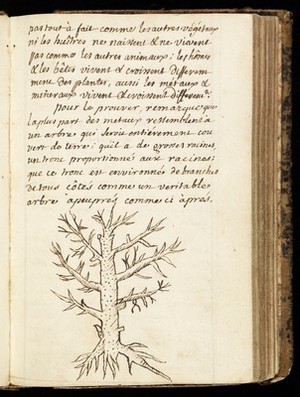 pas tout à fait comme les autres végétaux
ni les huîtres ne naissent & ne vivent
pas comme les autres animaux; les hômes
& les bêtes vivent & croissent différem
ment des plantes, aussi les métaux &
minéraux vivent & croissent différem.t
Pour le prouver, remarquez que
la plus part des metaux ressemblent à
un arbre qui seroit entièrement cou
vert de terre; qu'il a de grosses racines,
un tronc proportionné aux racines;
que ce tronc est environné de branches
de tous côtés comme un veritable
arbre à peu près comme ci après.